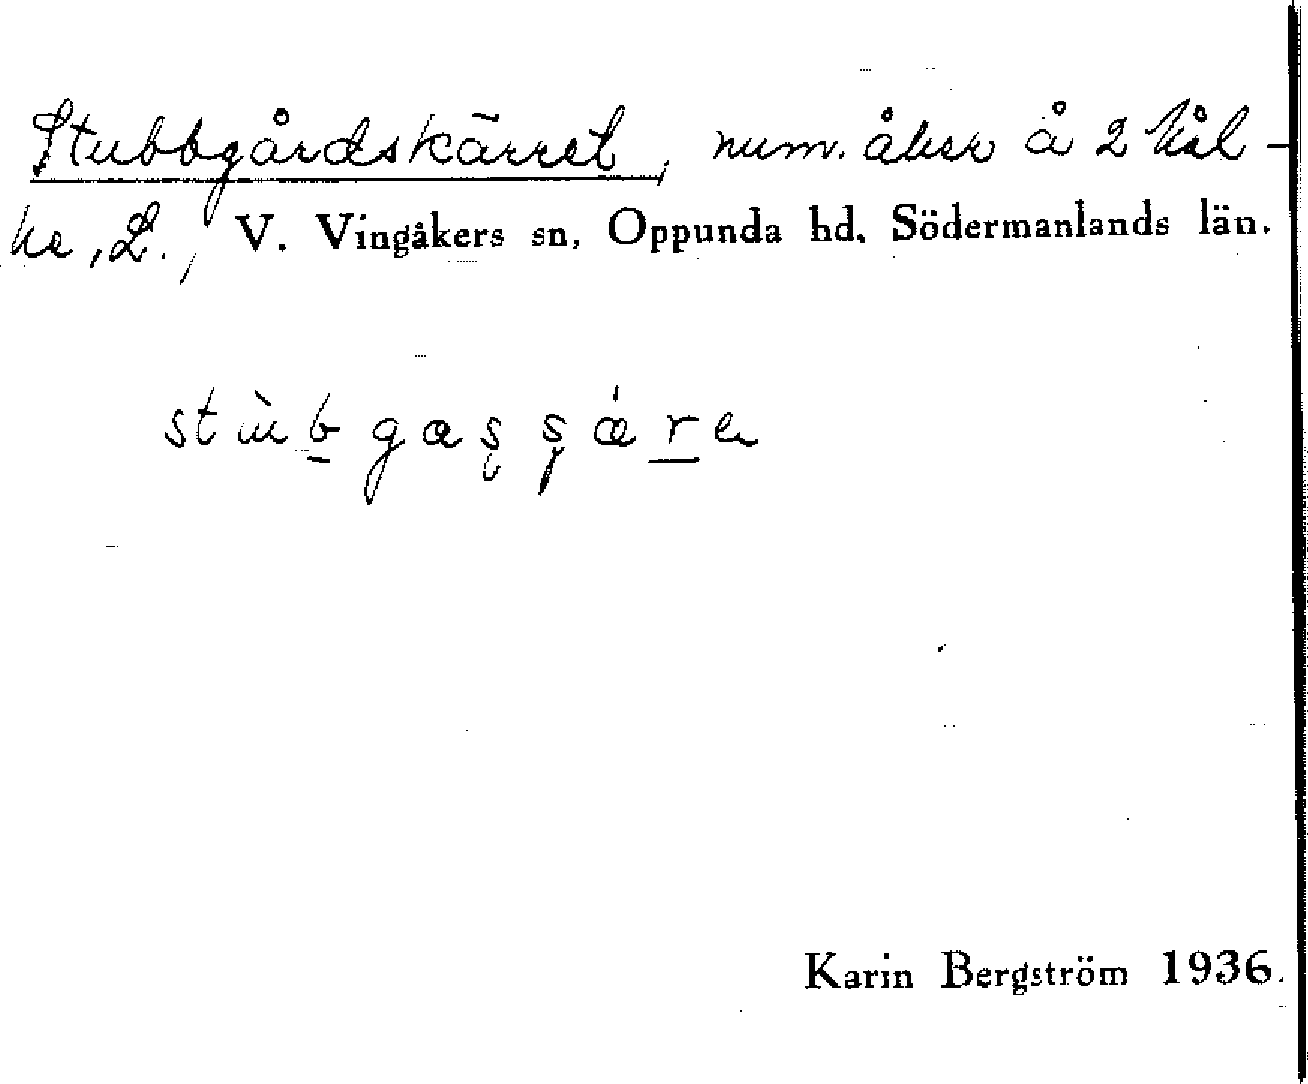 Stubbgårdskärret, num. åker å 2 Kål-
ke, L., V. Vingåkers sn, Oppunda hd. Södermanlands län.
stùbgas̬ʂǽre
Karin Bergström 1936.